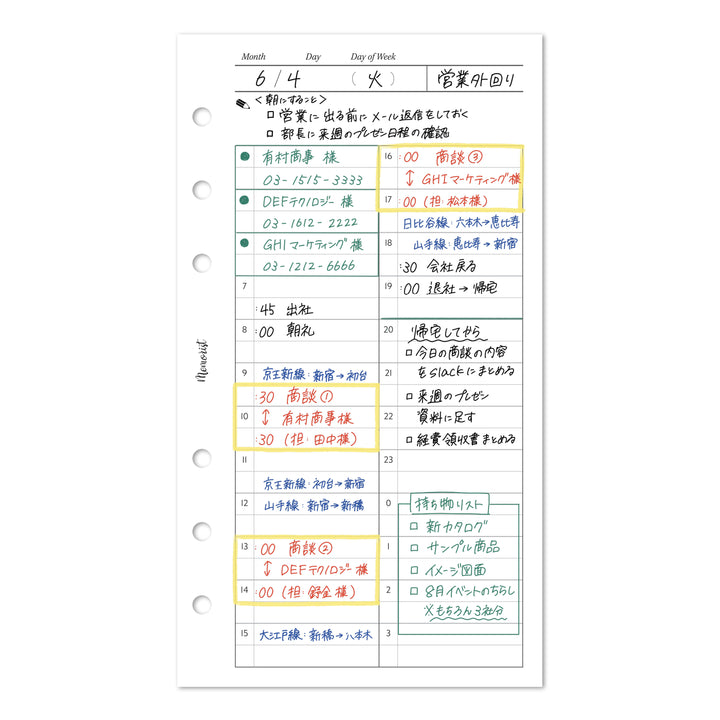 Month Day Day of Week
6 / 4 (火) 営業外回り
<朝にすること>
□ 営業に出る前にメール返信をしておく
□ 部長に来週のプレゼン日程の確認
● 有村商事 様
03-1515-3333
● DEFテクノロジー 様
03-1612-2222
● GHIマーケティング 様
03-1212-6666
7
:45 出社
8 :00 朝礼
9 京王新線:新宿→初台
:30 商談①
10 ↕ 有村商事様
:30 (担:田中様)
11
京王新線:初台→新宿
12 山手線:新宿→新橋
13 :00 商談②
↕ DEFテクノロジー様
14 :00 (担: 様)
15 大江戸線:新橋→六本木
16 :00 商談③
↕ GHIマーケティング様
17 :00 (担:松本様)
日比谷線:六本木→恵比寿
18 山手線:恵比寿→新宿
:30 会社戻る
19 :00 退社→帰宅
20 帰宅してから
□ 今日の商談の内容
21 をslackにまとめる
□ 来週のプレゼン
22 資料に足す
□ 経費領収書まとめる
23
0 持ち物リスト
□ 新カタログ
1 □ サンプル商品
□ イメージ図面
2 □ 8月イベントのちらし
※もちろん3社分
3
Memorist